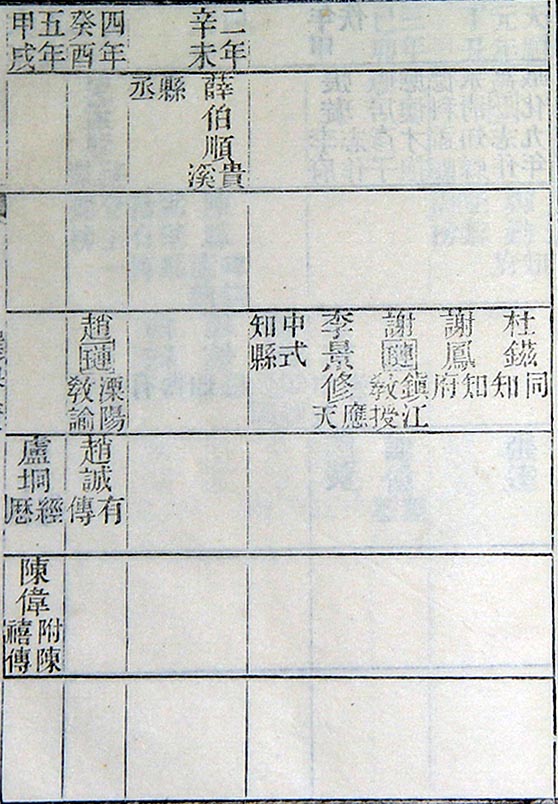 杜鎡同知
謝鳳知府
謝璉鎮江教授
李景修應天
中式知縣
二年辛未
薛伯順貴溪
縣丞
四年癸酉
趙璉溧陽教諭
趙誠有傳
五年甲戌
盧坰經厯
陳偉附陳禧傳